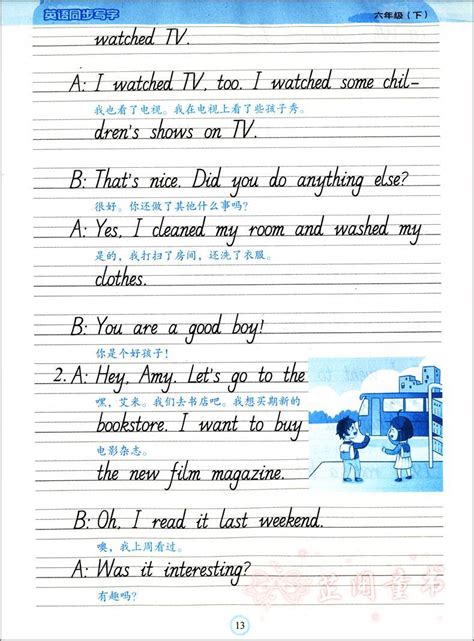 英语同步写字 六年级（下）
watched TV.
A: I watched TV, too. I watched some chil-
我也看了电视。我在电视上看了些孩子秀。
dren's shows on TV.
B: That's nice. Did you do anything else?
很好。你还做了其他什么事吗?
A: Yes, I cleaned my room and washed my
是的，我打扫了房间，还洗了衣服。
clothes.
B: You are a good boy!
你是个好孩子!
2. A: Hey, Amy. Let's go to the
嘿，艾米。我们去书店吧。我想买期新的
bookstore. I want to buy
电影杂志。
the new film magazine.
B: Oh, I read it last weekend.
噢，我上周看过。
A: Was it interesting?
有趣吗?
13